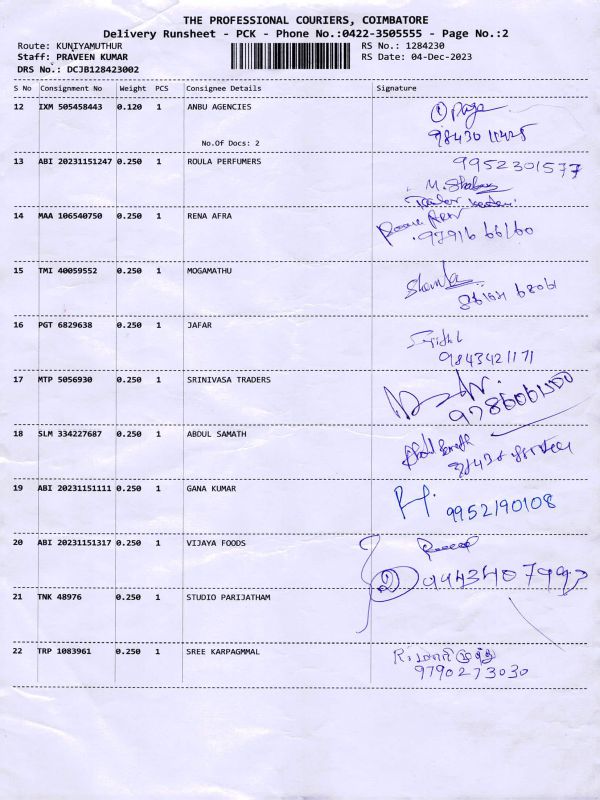 THE PROFESSIONAL COURIERS, COIMBATORE
Delivery Runsheet - PCK - Phone No.:0422-3505555 - Page No.:2
Route: KUNIYAMUTHUR RS No.: 1284230
Staff: PRAVEEN KUMAR RS Date: 04-Dec-2023
DRS No.: DCJB128423002
S No Consignment No Weight PCS Consignee Details Signature
12 IXM 505458443 0.120 1 ANBU AGENCIES
No.Of Docs: 2
98430 11425
13 ABI 20231151247 0.250 1 ROULA PERFUMERS 9952301577
14 MAA 106540750 0.250 1 RENA AFRA
97916 66160
15 TMI 40059552 0.250 1 MOGAMATHU
16 PGT 6829638 0.250 1 JAFAR
9843421171
17 MTP 5056930 0.250 1 SRINIVASA TRADERS
18 SLM 334227687 0.250 1 ABDUL SAMATH
19 ABI 20231151111 0.250 1 GANA KUMAR
9952190108
20 ABI 20231151317 0.250 1 VIJAYA FOODS
2 9943407993
21 TNK 48976 0.250 1 STUDIO PARIJATHAM
22 TRP 1083961 0.250 1 SREE KARPAGMMAL
9790273030